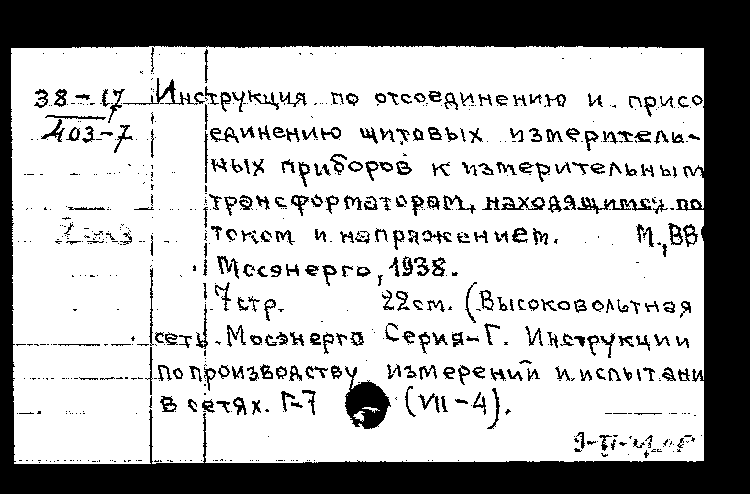 38-17
403-7
Инструкция по отсоединению и присо
единению щитовых измеритель-
ных приборов к измерительным
трансформаторам, находящимся по
током и напряжением. М., ВВ
Мосэнерго, 1938.
7 стр. 22 см. (Высоковольтная
сеть Мосэнерго Серия-Г. Инструкции
по производству измерений и испытани
в сетях. Г-7 (VII-4).